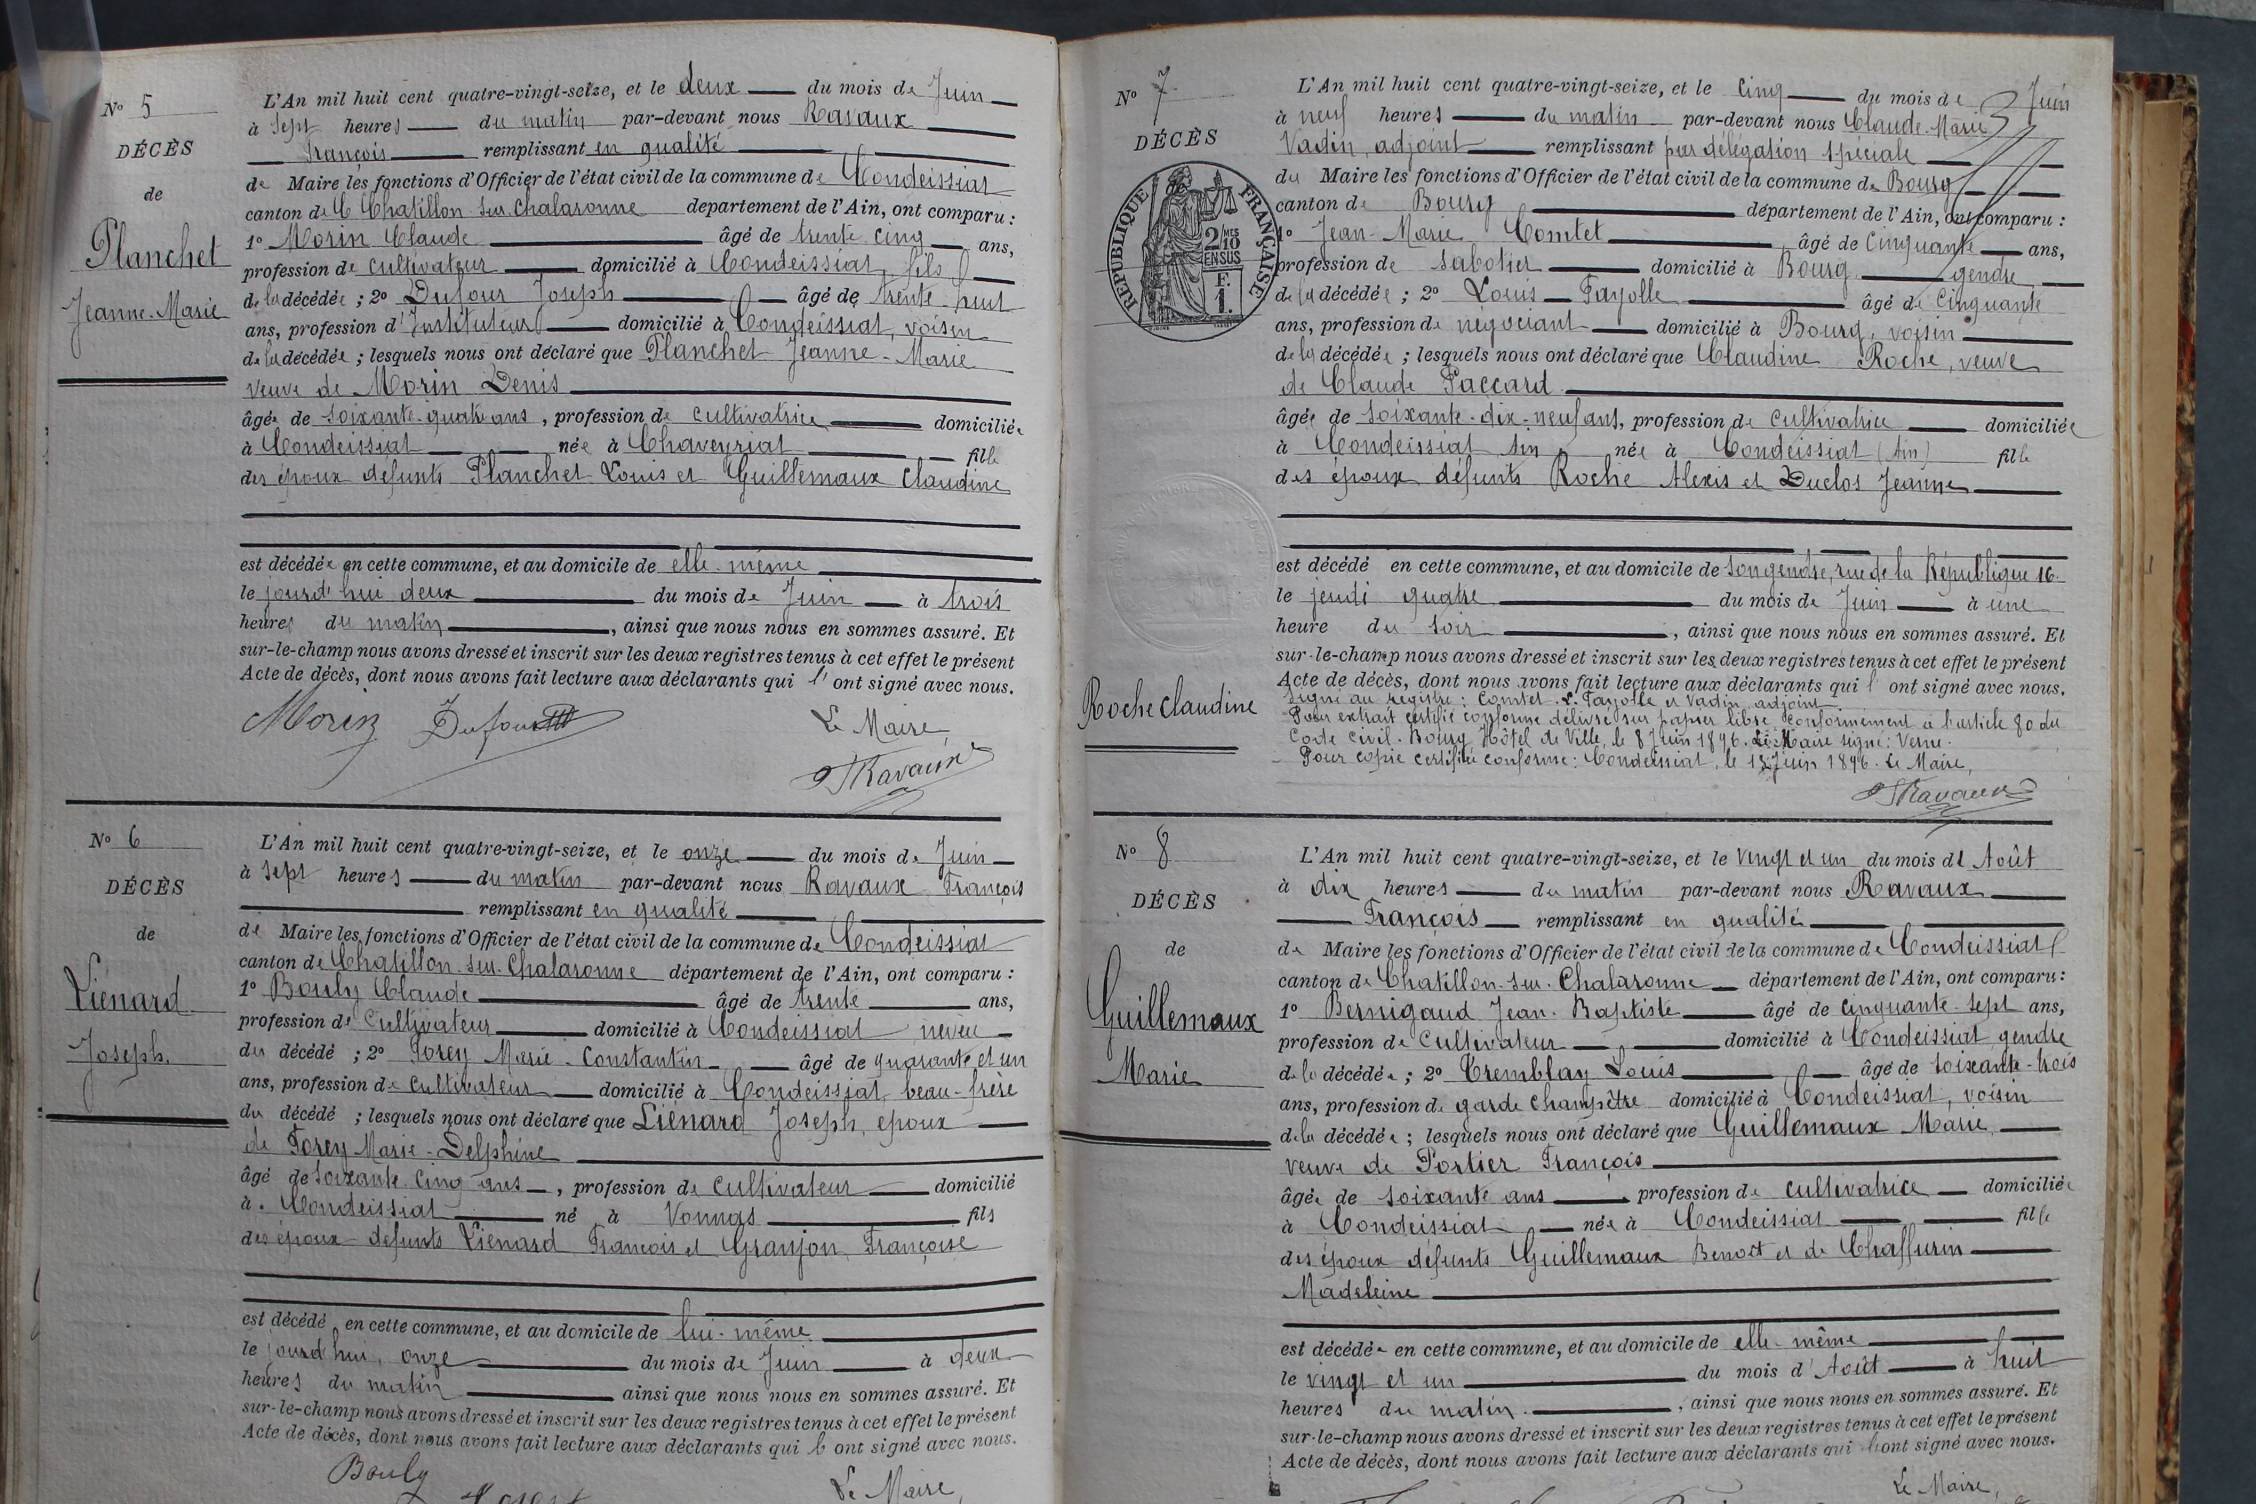 N° 5
DÉCÈS
de
Planchet
Jeanne-Marie
L'An mil huit cent quatre-vingt-seize, et le deux du mois de Juin
à sept heures du matin par-devant nous Ravaux
François remplissant en qualité
de Maire les fonctions d'Officier de l'état civil de la commune de Condeissiat
canton de Chatillon sur Chalaronne departement de l'Ain, ont comparu :
1° Morin Claude âgé de trente cinq ans,
profession de cultivateur domicilié à Condeissiat, fils
de la décédée ; 2° Dufour Joseph âgé de trente-huit
ans, profession d'Instituteur domicilié à Condeissiat, voisin
de la décédée ; lesquels nous ont déclaré que Planchet Jeanne-Marie
veuve de Morin Denis
âgée de soixante-quatre ans, profession de cultivatrice domiciliée
à Condeissiat née à Chaveyriat fille
des époux défunts Planchet Louis et Guillemaux Claudine
est décédée en cette commune, et au domicile de elle-même
le jourd'hui deux du mois de Juin à trois
heures du matin, ainsi que nous nous en sommes assuré. Et
sur-le-champ nous avons dressé et inscrit sur les deux registres tenus à cet effet le présent
Acte de décès, dont nous avons fait lecture aux déclarants qui l'ont signé avec nous.
Morin Dufour Le Maire,
Ravaux
N° 6
DÉCÈS
de
Liénard
Joseph.
L'An mil huit cent quatre-vingt-seize, et le onze du mois de Juin
à sept heures du matin par-devant nous Ravaux François
remplissant en qualité
de Maire les fonctions d'Officier de l'état civil de la commune de Condeissiat
canton de Chatillon-sur-Chalaronne département de l'Ain, ont comparu :
1° Bouly Claude âgé de trente ans,
profession de cultivateur domicilié à Condeissiat neveu
du décédé ; 2° Forey Marie-Constantin âgé de quarante et un
ans, profession de cultivateur domicilié à Condeissiat, beau-frère
du décédé ; lesquels nous ont déclaré que Liénard Joseph, époux
de Forey Marie-Delphine
âgé de soixante cinq ans, profession de cultivateur domicilié
à Condeissiat né à Vonnas fils
des époux défunts Liénard François et Granjon Françoise
est décédé en cette commune, et au domicile de lui-même
le jourd'hui, onze du mois de Juin à deux
heures du matin ainsi que nous nous en sommes assuré. Et
sur-le-champ nous avons dressé et inscrit sur les deux registres tenus à cet effet le présent
Acte de décès, dont nous avons fait lecture aux déclarants qui l'ont signé avec nous.
Bouly
Le Maire,
N° 7
DÉCÈS
RÉPUBLIQUE FRANÇAISE
2/10 MES
EN SUS
F.
1.
Roche Claudine
L'An mil huit cent quatre-vingt-seize, et le cinq du mois de Juin
à neuf heures du matin par-devant nous Claude-Marie
Vadin, adjoint remplissant par délégation spéciale
du Maire les fonctions d'Officier de l'état civil de la commune de Bourg
canton de Bourg département de l'Ain, ont comparu :
1° Jean-Marie Comtet âgé de cinquante ans,
profession de sabotier domicilié à Bourg gendre
de la décédée ; 2° Louis Fayolle âgé de cinquante
ans, profession de négociant domicilié à Bourg, voisin
de la décédée ; lesquels nous ont déclaré que Claudine Roche, veuve
de Claude Paccard
âgée de soixante-dix-neuf ans, profession de cultivatrice domiciliée
à Condeissiat Ain née à Condeissiat (Ain) fille
des époux défunts Roche Alexis et Duclos Jeanne
est décédée en cette commune, et au domicile de son gendre, rue de la République 16.
le jeudi quatre du mois de Juin à une
heure du soir, ainsi que nous nous en sommes assuré. Et
sur-le-champ nous avons dressé et inscrit sur les deux registres tenus à cet effet le présent
Acte de décès, dont nous avons fait lecture aux déclarants qui l'ont signé avec nous.
Signé au registre : Comtet. L. Fayolle et Vadin, adjoint
Pour extrait certifié conforme délivré sur papier libre conformément à l'article 80 du
Code civil. Bourg, Hôtel de Ville, le 8 Juin 1896. Le Maire signé : Verne.
Pour copie certifiée conforme : Condeissiat, le 13 Juin 1896. Le Maire,
Ravaux
N° 8
DÉCÈS
de
Guillemaux
Marie
L'An mil huit cent quatre-vingt-seize, et le vingt et un du mois d'Août
à dix heures du matin par-devant nous Ravaux
François remplissant en qualité
de Maire les fonctions d'Officier de l'état civil de la commune de Condeissiat
canton de Chatillon-sur-Chalaronne département de l'Ain, ont comparu :
1° Bernigaud Jean-Baptiste âgé de cinquante-sept ans,
profession de cultivateur domicilié à Condeissiat gendre
de la décédée ; 2° Tremblay Louis âgé de soixante-trois
ans, profession de garde champêtre domicilié à Condeissiat, voisin
de la décédée ; lesquels nous ont déclaré que Guillemaux Marie,
veuve de Portier François
âgée de soixante ans profession de cultivatrice domiciliée
à Condeissiat née à Condeissiat fille
des époux défunts Guillemaux Benoît et de Chaffurin
Madeleine
est décédée en cette commune, et au domicile de elle-même
le vingt et un du mois d'Août à huit
heures du matin, ainsi que nous nous en sommes assuré. Et
sur-le-champ nous avons dressé et inscrit sur les deux registres tenus à cet effet le présent
Acte de décès, dont nous avons fait lecture aux déclarants qui l'ont signé avec nous.
Le Maire,